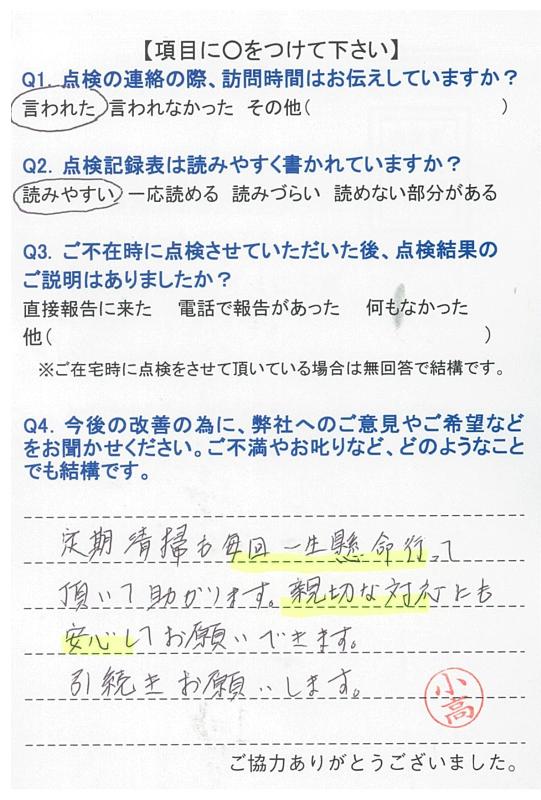 【項目に〇をつけて下さい】
Q1. 点検の連絡の際、訪問時間はお伝えしていますか？
言われた 言われなかった その他( )
Q2. 点検記録表は読みやすく書かれていますか？
読みやすい 一応読める 読みづらい 読めない部分がある
Q3. ご不在時に点検させていただいた後、点検結果の
ご説明はありましたか？
直接報告に来た 電話で報告があった 何もなかった
他( )
※ご在宅時に点検をさせて頂いている場合は無回答で結構です。
Q4. 今後の改善の為に、弊社へのご意見やご希望など
をお聞かせください。ご不満やお叱りなど、どのようなこと
でも結構です。
定期清掃も毎回一生懸命行って
頂いて助かります。親切な対応にも
安心してお願いできます。
引続きお願いします。
小高
ご協力ありがとうございました。